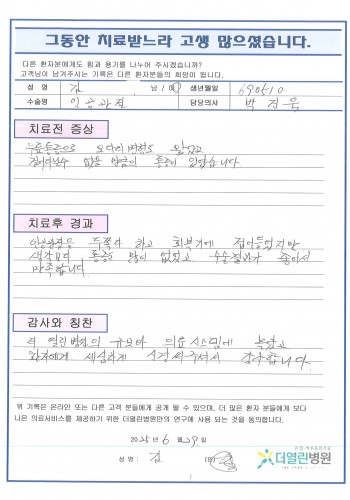 그동안 치료받느라 고생 많으셨습니다.
다른 환자분에게도 힘과 용기를 나누어 주시겠습니까?
고객님이 남겨주시는 기록은 다른 환자분들의 희망이 됩니다.
성 명 김 님 생년월일 690510
수술명 인공관절 담당의사 박
치료전 증상
무릎통증으로 오다리 변형도 왔었고
걸어다닐수 없을 만큼의 통증이 있었습니다
치료후 경과
인공관절은 두쪽다 하고 회복기에 접어들었지만
생각보다 통증도 많이 없었고 수술결과가 좋아서
만족합니다.
감사와 칭찬
더 열린병원의 규모와 의료시스템에 놀랐고
환자에게 세심하게 신경써주셔서 감사합니다.
위 기록은 온라인 또는 다른 고객 분들에게 공개 될 수 있으며, 더 많은 환자 분들에게 보다
나은 의료서비스를 제공하기 위한 더열린병원만의 연구에 사용 되는 것을 동의합니다.
2025년 6월 29일
성 명 : 김
더열린병원